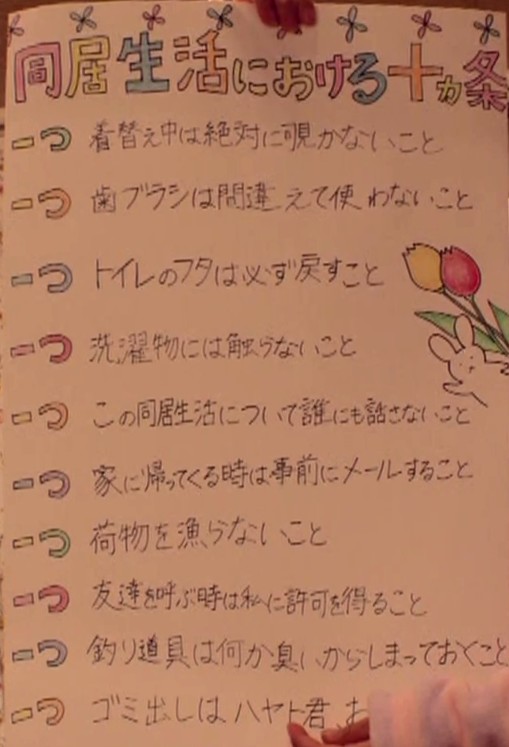 同居生活における十ヵ条
一つ 着替え中は絶対に覗かないこと
一つ 歯ブラシは間違えて使わないこと
一つ トイレのフタは必ず戻すこと
一つ 洗濯物には触らないこと
一つ この同居生活について誰にも話さないこと
一つ 家に帰ってくる時は事前にメールすること
一つ 荷物を漁らないこと
一つ 友達を呼ぶ時は私に許可を得ること
一つ 釣り道具は何か臭いからしまっておくこと
一つ ゴミ出しはハヤト君、お